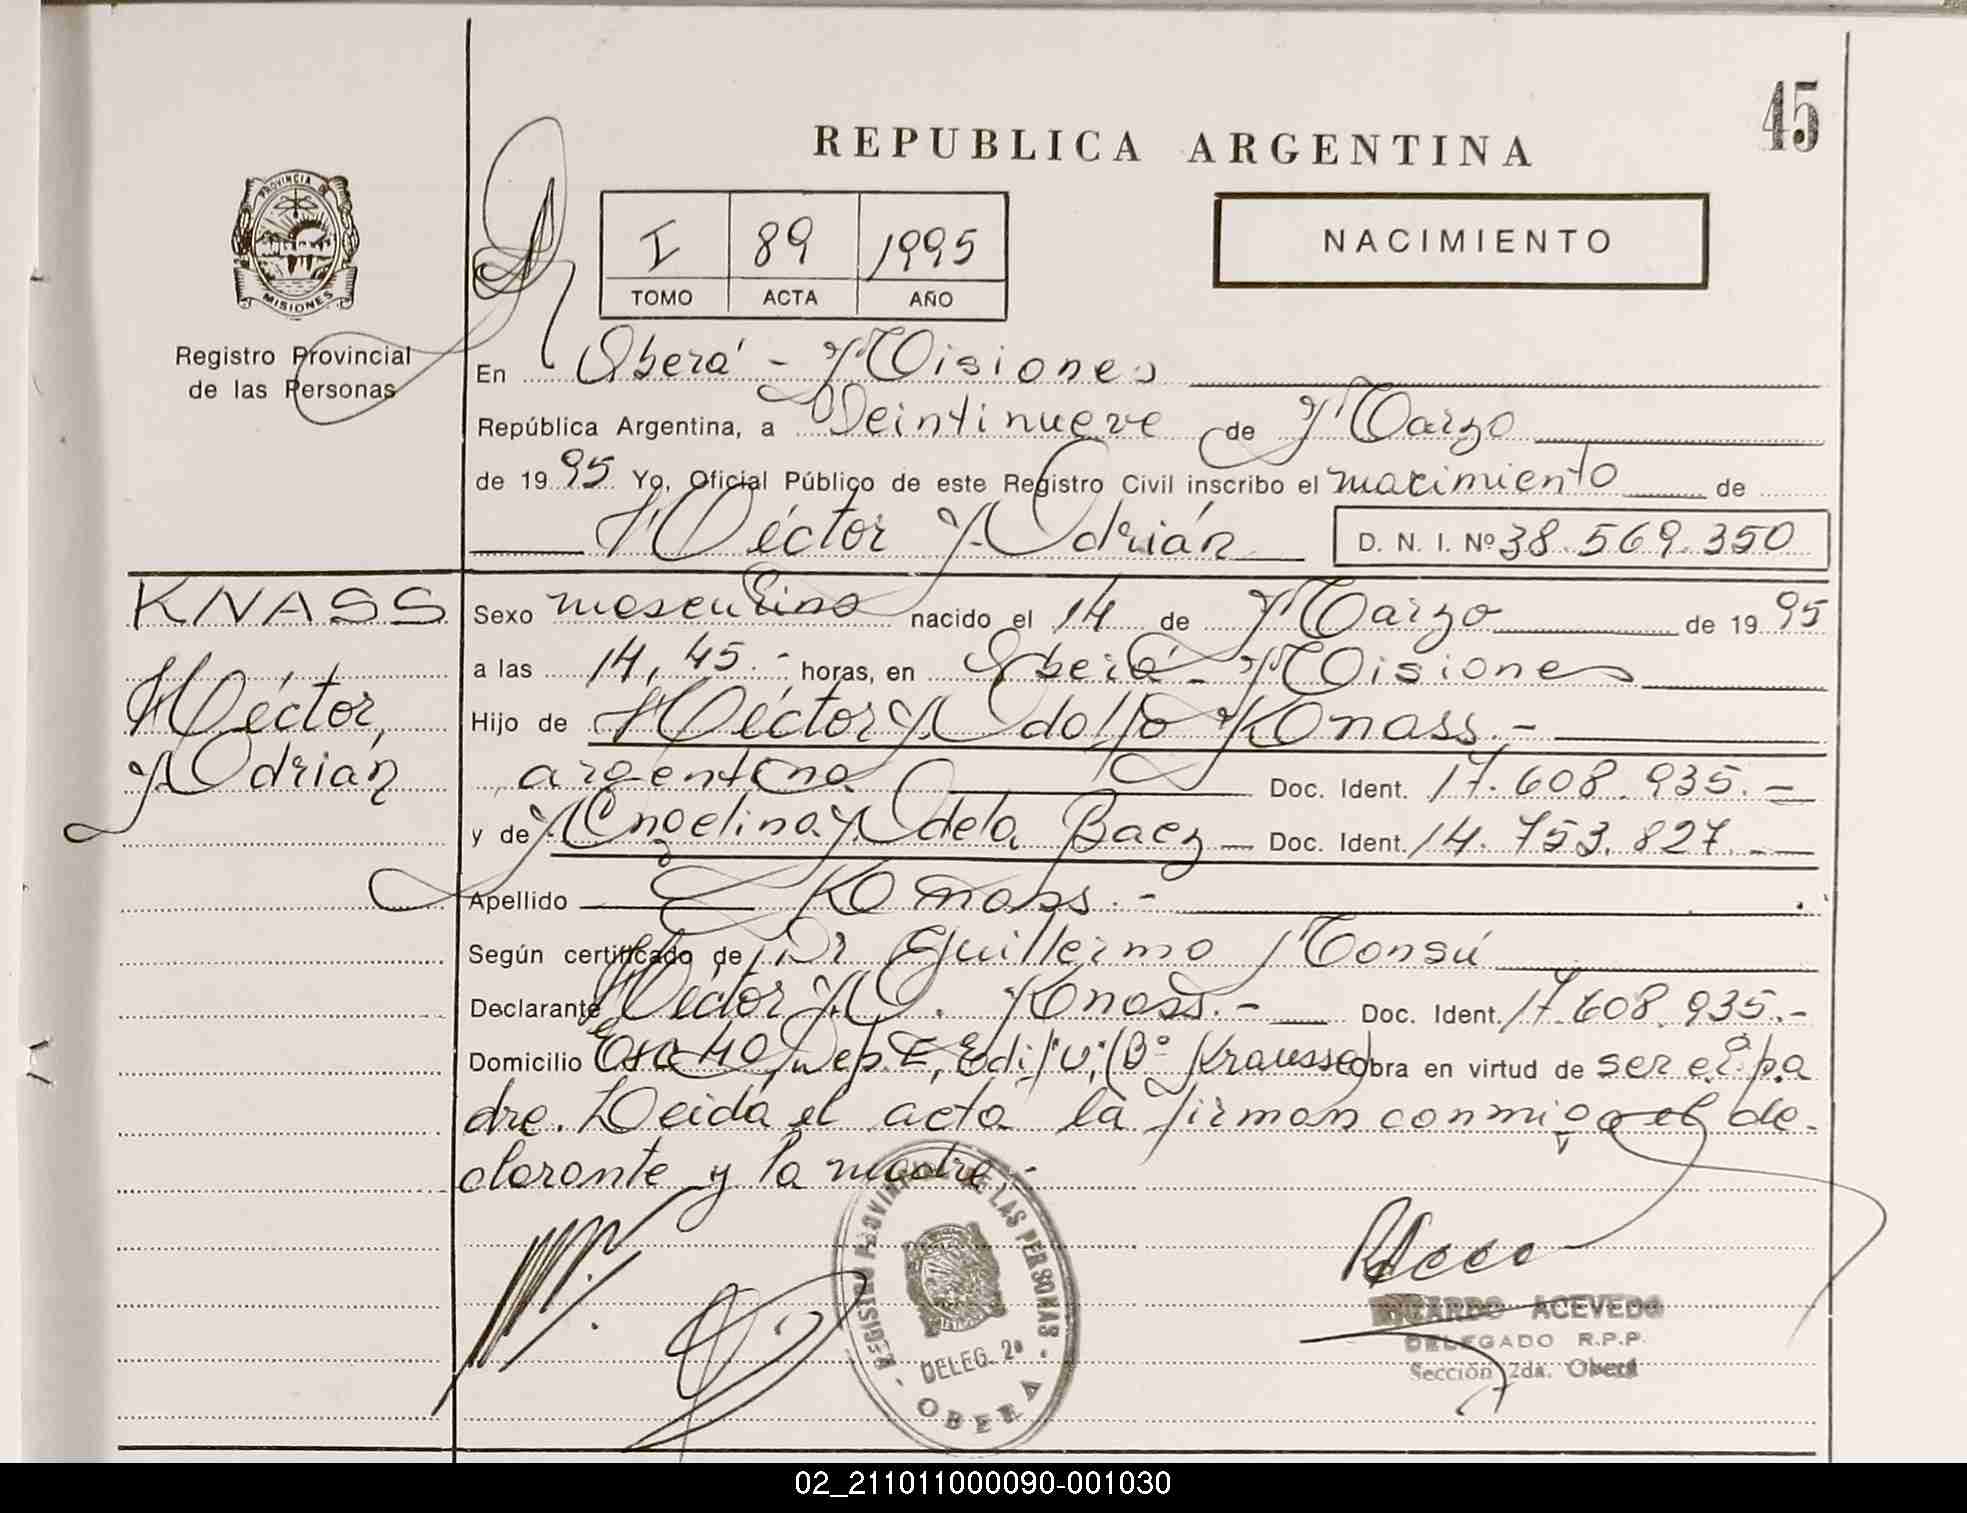 45
REPUBLICA ARGENTINA
PROVINCIA DE
MISIONES
I 89 1995
TOMO ACTA AÑO
NACIMIENTO
Registro Provincial
de las Personas
En Oberá - Misiones
República Argentina, a Veintinueve de Marzo
de 1995 Yo, Oficial Público de este Registro Civil inscribo el nacimiento de
Héctor Adrián D. N. I. Nº 38.569.350
KNASS
Héctor
Adrián
Sexo masculino nacido el 14 de Marzo de 1995
a las 14,45.- horas, en Oberá - Misiones
Hijo de Héctor Adolfo Knass.-
argentino Doc. Ident. 17.608.935.-
y de Angelina Adela Baez Doc. Ident. 14.753.827.-
Apellido Knass.-
Según certificado de Dr Guillermo Monsú
Declarante Héctor A. Knass.- Doc. Ident. 17.608.935.-
Domicilio 40, Dep. E, Edif "U", (Bº Krausse) obra en virtud de ser el pa
dre. Leida el acta la firman conmigo el de-
clarante y la madre.-
REGISTRO PROVINCIAL DE LAS PERSONAS
DELEG. 2ª
OBERA
RICARDO ACEVEDO
DELEGADO R.P.P.
Sección 2da. Oberá
02_211011000090-001030